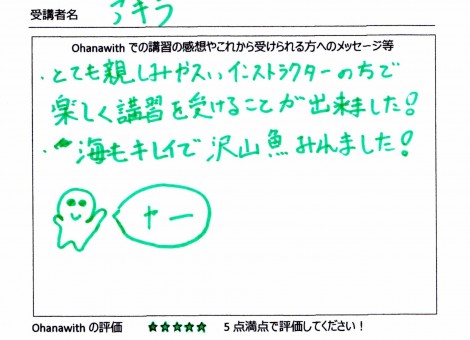 受講者名 アキラ
Ohanawith での講習の感想やこれから受けられる方へのメッセージ等
・とても親しみやすいインストラクターの方で
楽しく講習を受けることが出来ました!
・海もキレイで沢山魚みれました!
ヤー
Ohanawith の評価 ★★★★★ 5点満点で評価してください！